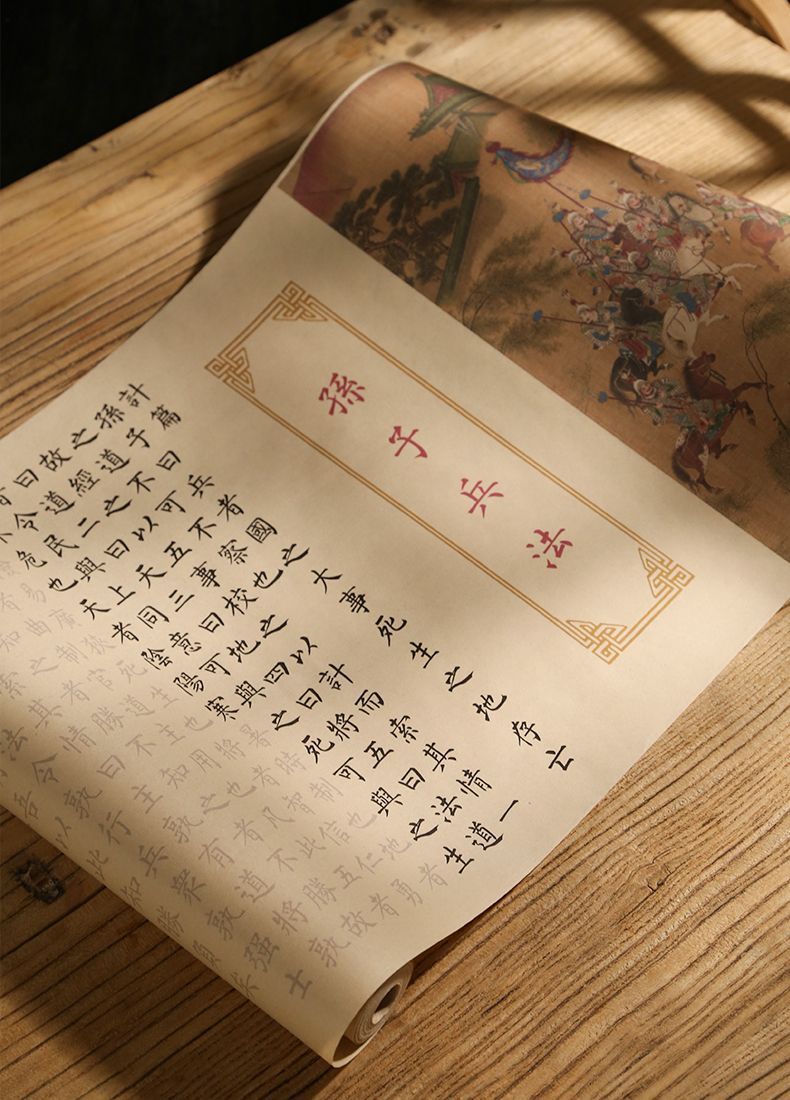 孫子兵法
計篇
孫子曰兵者國之大事死生之地存亡
之道不可不察也
故經之以五事校之以計而索其情一
曰道二曰天三曰地四曰將五曰法道
者令民與上同意可與之死可與之生
不危也天者陰陽寒暑時制也地者
險易廣狹死生也將者智信仁勇
者曲制官道主用也凡此五者
知之者勝不知之者不勝故
索其情曰主孰有道將孰
法令孰行兵眾孰強士
吾以此知勝負矣